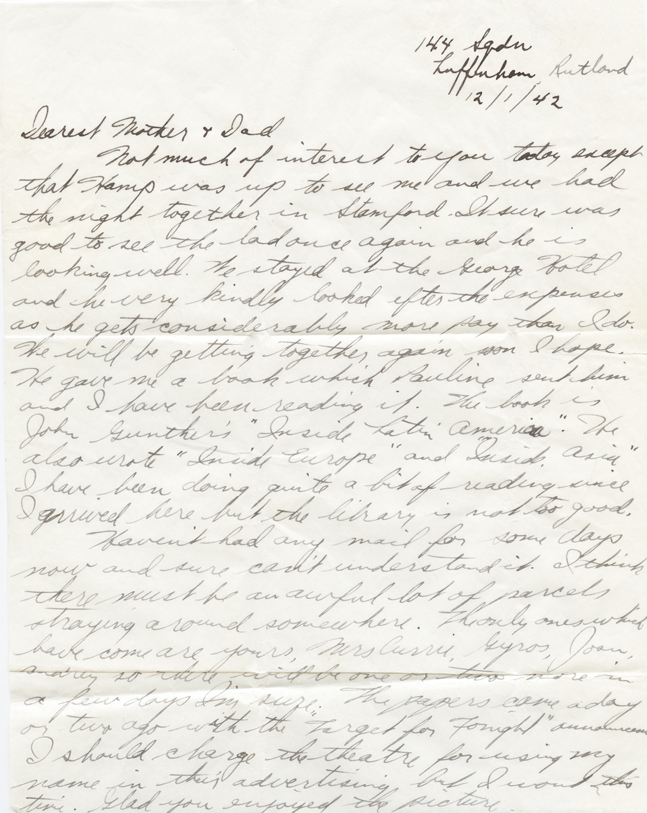 144 Sqdn
Luffenham, Rutland
12/1/42
Dearest Mother & Dad
Not much of interest to you today except
that Hamp was up to see me and we had
the night together in Stamford. It sure was
good to see the lad once again and he is
looking well. We stayed at the George Hotel
and he very kindly looked after the expenses
as he gets considerably more pay than I do.
We will be getting together again soon I hope.
He gave me a book which Pauline sent him
and I have been reading it. The book is
John Gunther's "Inside Latin America". He
also wrote "Inside Europe" and "Inside Asia"
I have been doing quite a bit of reading since
I arrived here but the library is not too good.
Haven't had any mail for some days
now and sure can't understand it. I think
there must be an awful lot of parcels
straying around somewhere. The only ones which
have come are yours, Mrs Currie, Gyros, Joan,
so there will be one or two more in
a few days I'm sure. The papers came a day
or two ago with the "Target for Tonight"
I should charge the theatre for using my
name in their advertising but I wont this
time. Glad you enjoyed the picture.